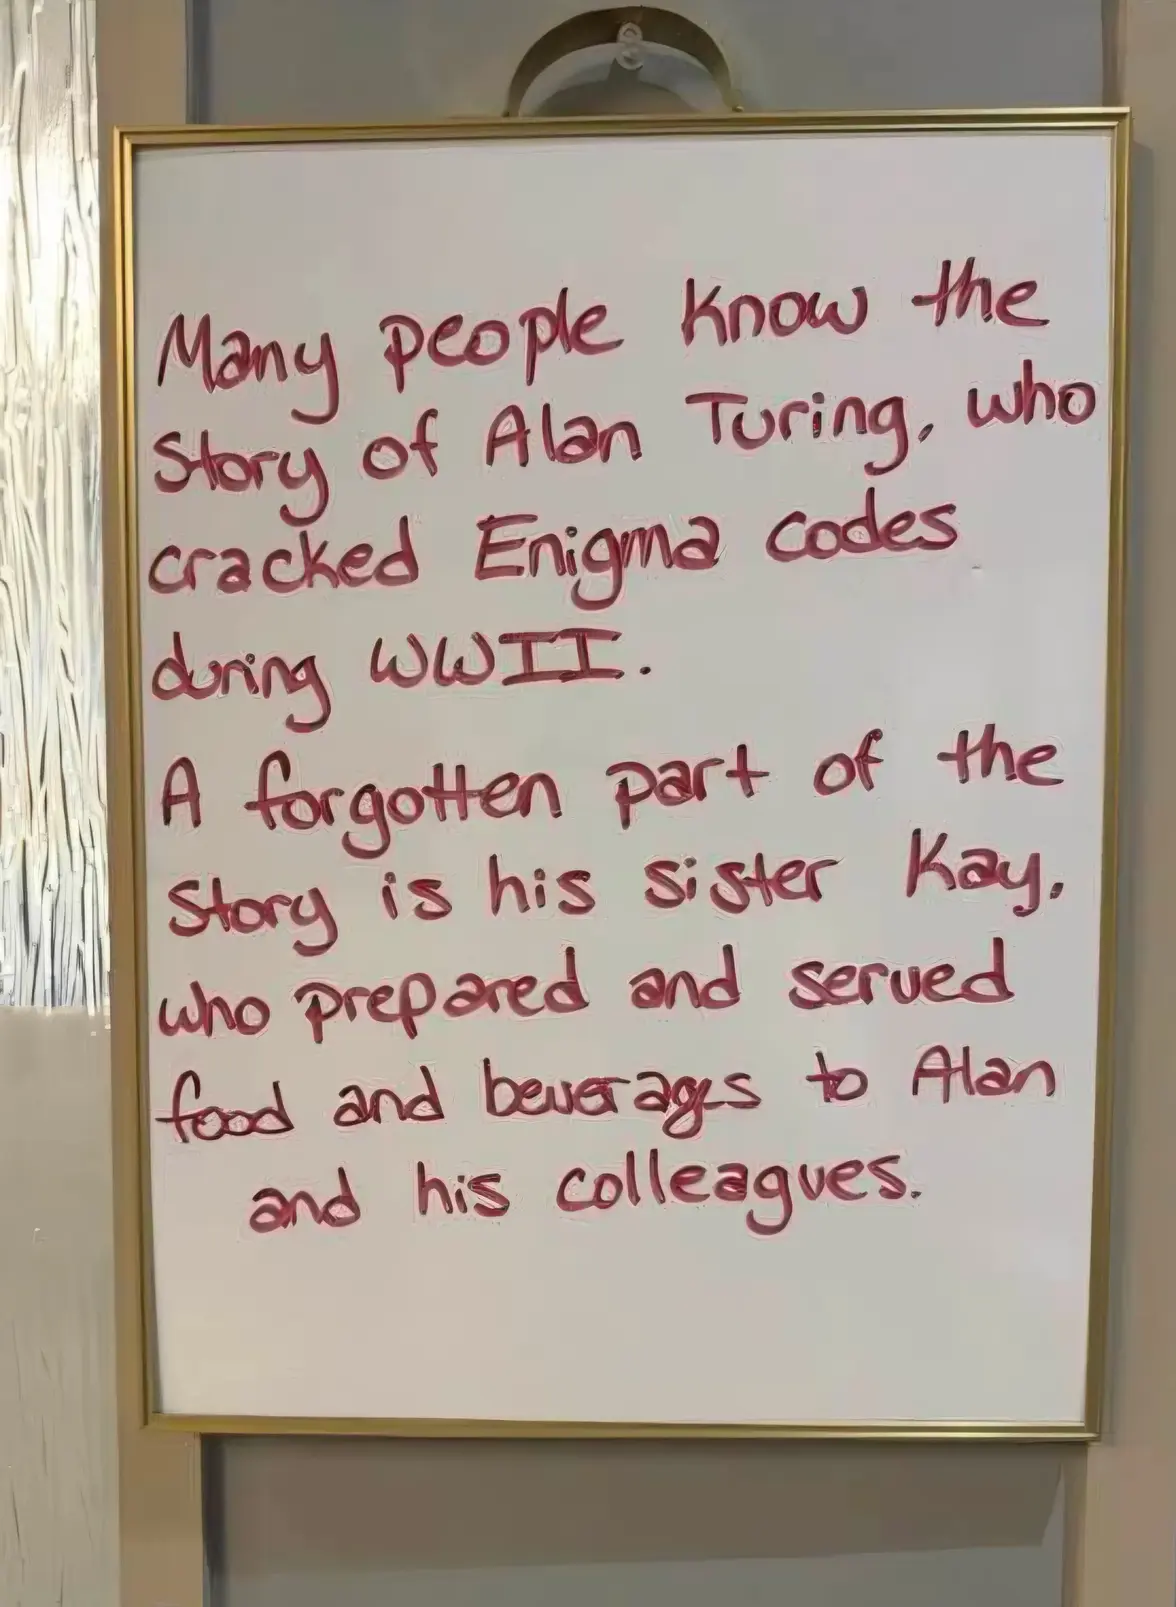 Many people know the
Story of Alan Turing, who
cracked Enigma codes
during WWII.
A forgotten part of the
Story is his sister Kay,
who prepared and served
food and beverages to Alan
and his colleagues.